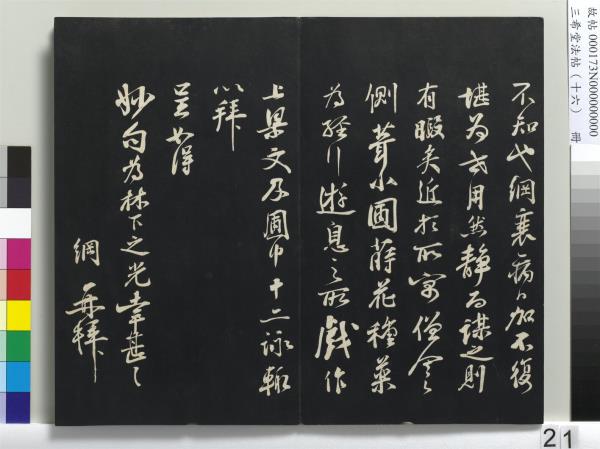 故帖 000173N000000000
三希堂法帖（十六） 冊
不知也綱衰病日加不復
堪为世用然静为謀之則
有暇矣近於所寓僧舍之
側葺小圃蒔花種藥
为經行遊息之所戲作
上梁文及圃中十二詠輙
以拜
呈如得
妙句为林下之光幸甚々
綱再拜
21